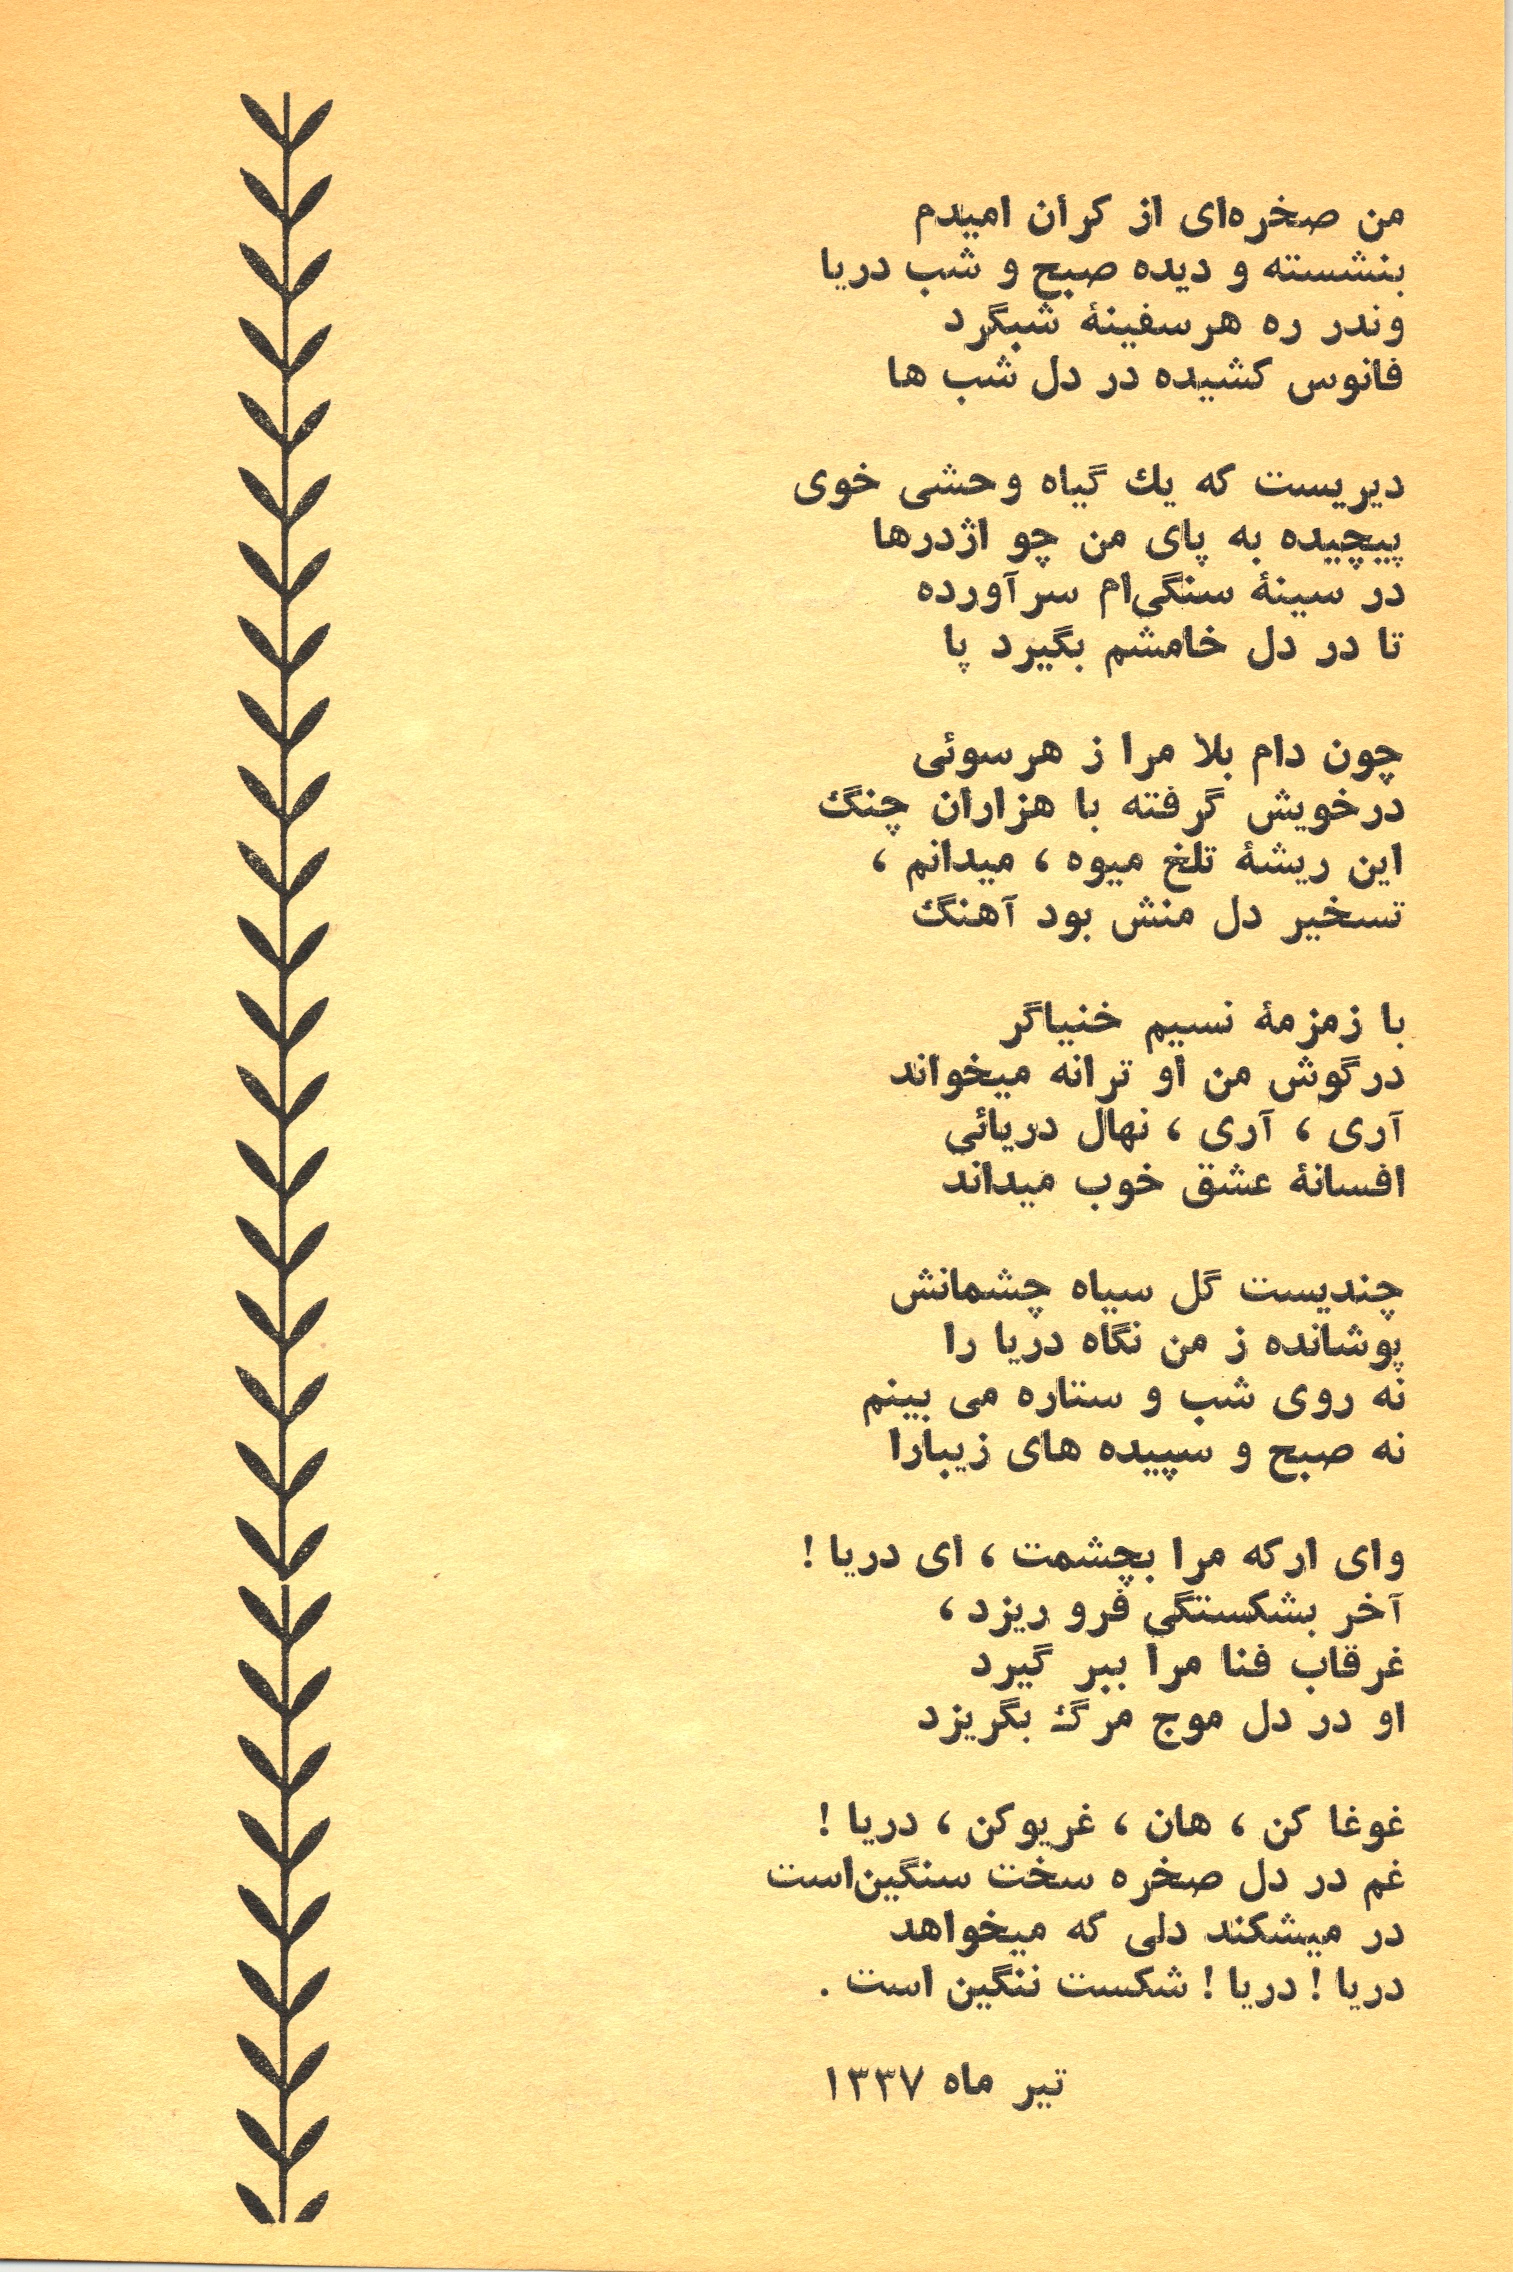 من صخره‌ای از کران امیدم
بنشسته و دیده صبح و شب دریا
وندر ره هرسفینهٔ شبگرد
فانوس کشیده در دل شب ها
دیریست که یك گیاه وحشی خوی
پیچیده به پای من چو اژدرها
در سینهٔ سنگی‌ام سرآورده
تا در دل خامشم بگیرد پا
چون دام بلا مرا ز هرسوئی
درخویش گرفته با هزاران چنگ
این ریشهٔ تلخ میوه ، میدانم ،
تسخیر دل منش بود آهنگ
با زمزمهٔ نسیم خنیاگر
درگوش من او ترانه میخواند
آری ، آری ، نهال دریائی
افسانهٔ عشق خوب میداند
چندیست گل سیاه چشمانش
پوشانده ز من نگاه دریا را
نه روی شب و ستاره می بینم
نه صبح و سپیده های زیبارا
وای ارکه مرا بچشمت ، ای دریا !
آخر بشکستگی فرو ریزد ،
غرقاب فنا مرا ببر گیرد
او در دل موج مرگ بگریزد
غوغا کن ، هان ، غریوکن ، دریا !
غم در دل صخره سخت سنگین‌است
در میشکند دلی که میخواهد
دریا ! دریا ! شکست ننگین است .
تیر ماه ۱۳۳۷